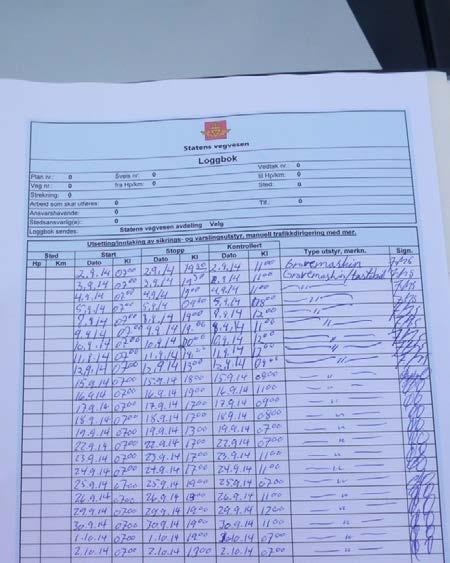 Statens vegvesen
Loggbok
Plan nr.: 0 Skiv nr.: 0 Vedtak nr.: 0
Veg nr.: 0 fra Hp/km: 0 til Hp/km: 0
Strekning: 0 Sted: 0
Arbeid som skal utføres: 0
Ansvarshavende: 0 Tlf.: 0
Stedsansvarlig(e): 0
Loggbok sendes: Statens vegvesen avdeling Velg
Utsetting/inntaking av sikrings- og varslingsutstyr, manuell trafikkdirigering med mer.
Sted Start Stopp Kontrollert Type utstyr, merkn. Sign.
Hp Km Dato Kl Dato Kl Dato Kl
2.9.14 0700 2.9.14 2.9.14 1100 Gravemaskin
3.9.14 0700 1100 Gravemaskin/lastebil
4.9.14 0700 4.9.14 1100 — " —
5.9.14 0700 5.9.14 — " —
8.9.14 1200 — " —
9.9.14 0700 9.9.14 1100 — " —
10.9.14 0700 10.9.14 10.9.14 1200 — " —
11.9.14 0700 11.9.14 11.9.14 1200 — " —
12.9.14 0700 12.9.14 1300 12.9.14 — " —
15.9.14 0700 15.9.14 1800 15.9.14 0800 — " —
16.9.14 0700 16.9.14 1900 16.9.14 1100 — " —
17.9.14 0700 17.9.14 1700 17.9.14 0900 — " —
18.9.14 0700 18.9.14 1700 18.9.14 0800 — " —
19.9.14 0700 19.9.14 1300 19.9.14 0700 — " —
22.9.14 0700 22.9.14 1700 22.9.14 1100 — " —
23.9.14 0700 23.9.14 1700 23.9.14 1100 — " —
24.9.14 0700 24.9.14 1700 24.9.14 1100 — " —
25.9.14 0700 25.9.14 1900 25.9.14 0700 — " —
26.9.14 0700 26.9.14 1300 26.9.14 1100 — " —
29.9.14 0700 29.9.14 1900 29.9.14 1200 — " —
30.9.14 0700 30.9.14 1900 30.9.14 1100 — " —
1.10.14 0700 1.10.14 1900 1.10.14 0700 — " —
2.10.14 0700 2.10.14 1900 2.10.14 0700 — " —